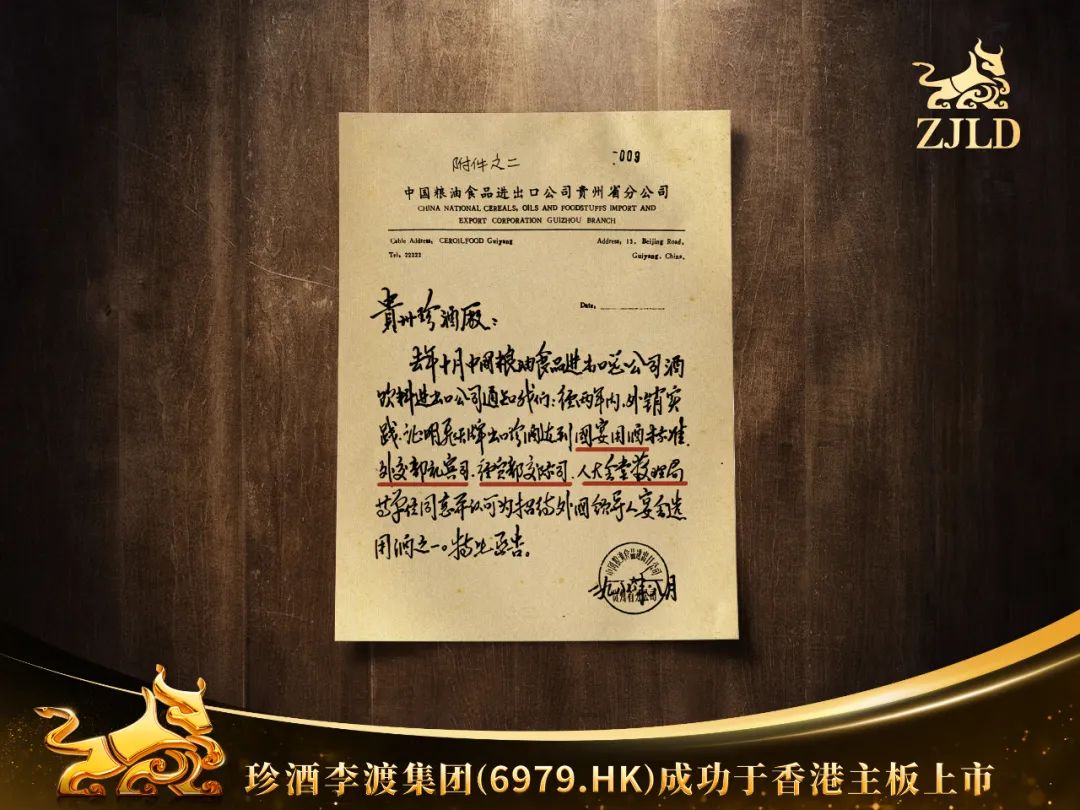 ZJLD
附件之二
-009
中国粮油食品进出口公司贵州省分公司
CHINA NATIONAL CEREALS, OILS AND FOODSTUFFS IMPORT AND
EXPORT CORPORATION GUIZHOU BRANCH
Cable Address: CEROILFOOD Guiyang
Address: 13, Beijing Road,
Tel: 22222
Guiyang, China.
Date:
貴州珍酒厰:
去年十月中国粮油食品进出口总公司酒
饮料进出口公司通知我们:经两年内、外销实
践,证明飞天牌出口珍酒达到国宴用酒标准.
外交部礼宾司、经贸部交际司、人大会堂管理局
等单位同意并认可为招待外国领导人宴会选
用酒之一。特此函告。
中国粮油食品进出口公司
贵州省分公司
珍酒李渡集团(6979.HK)成功于香港主板上市